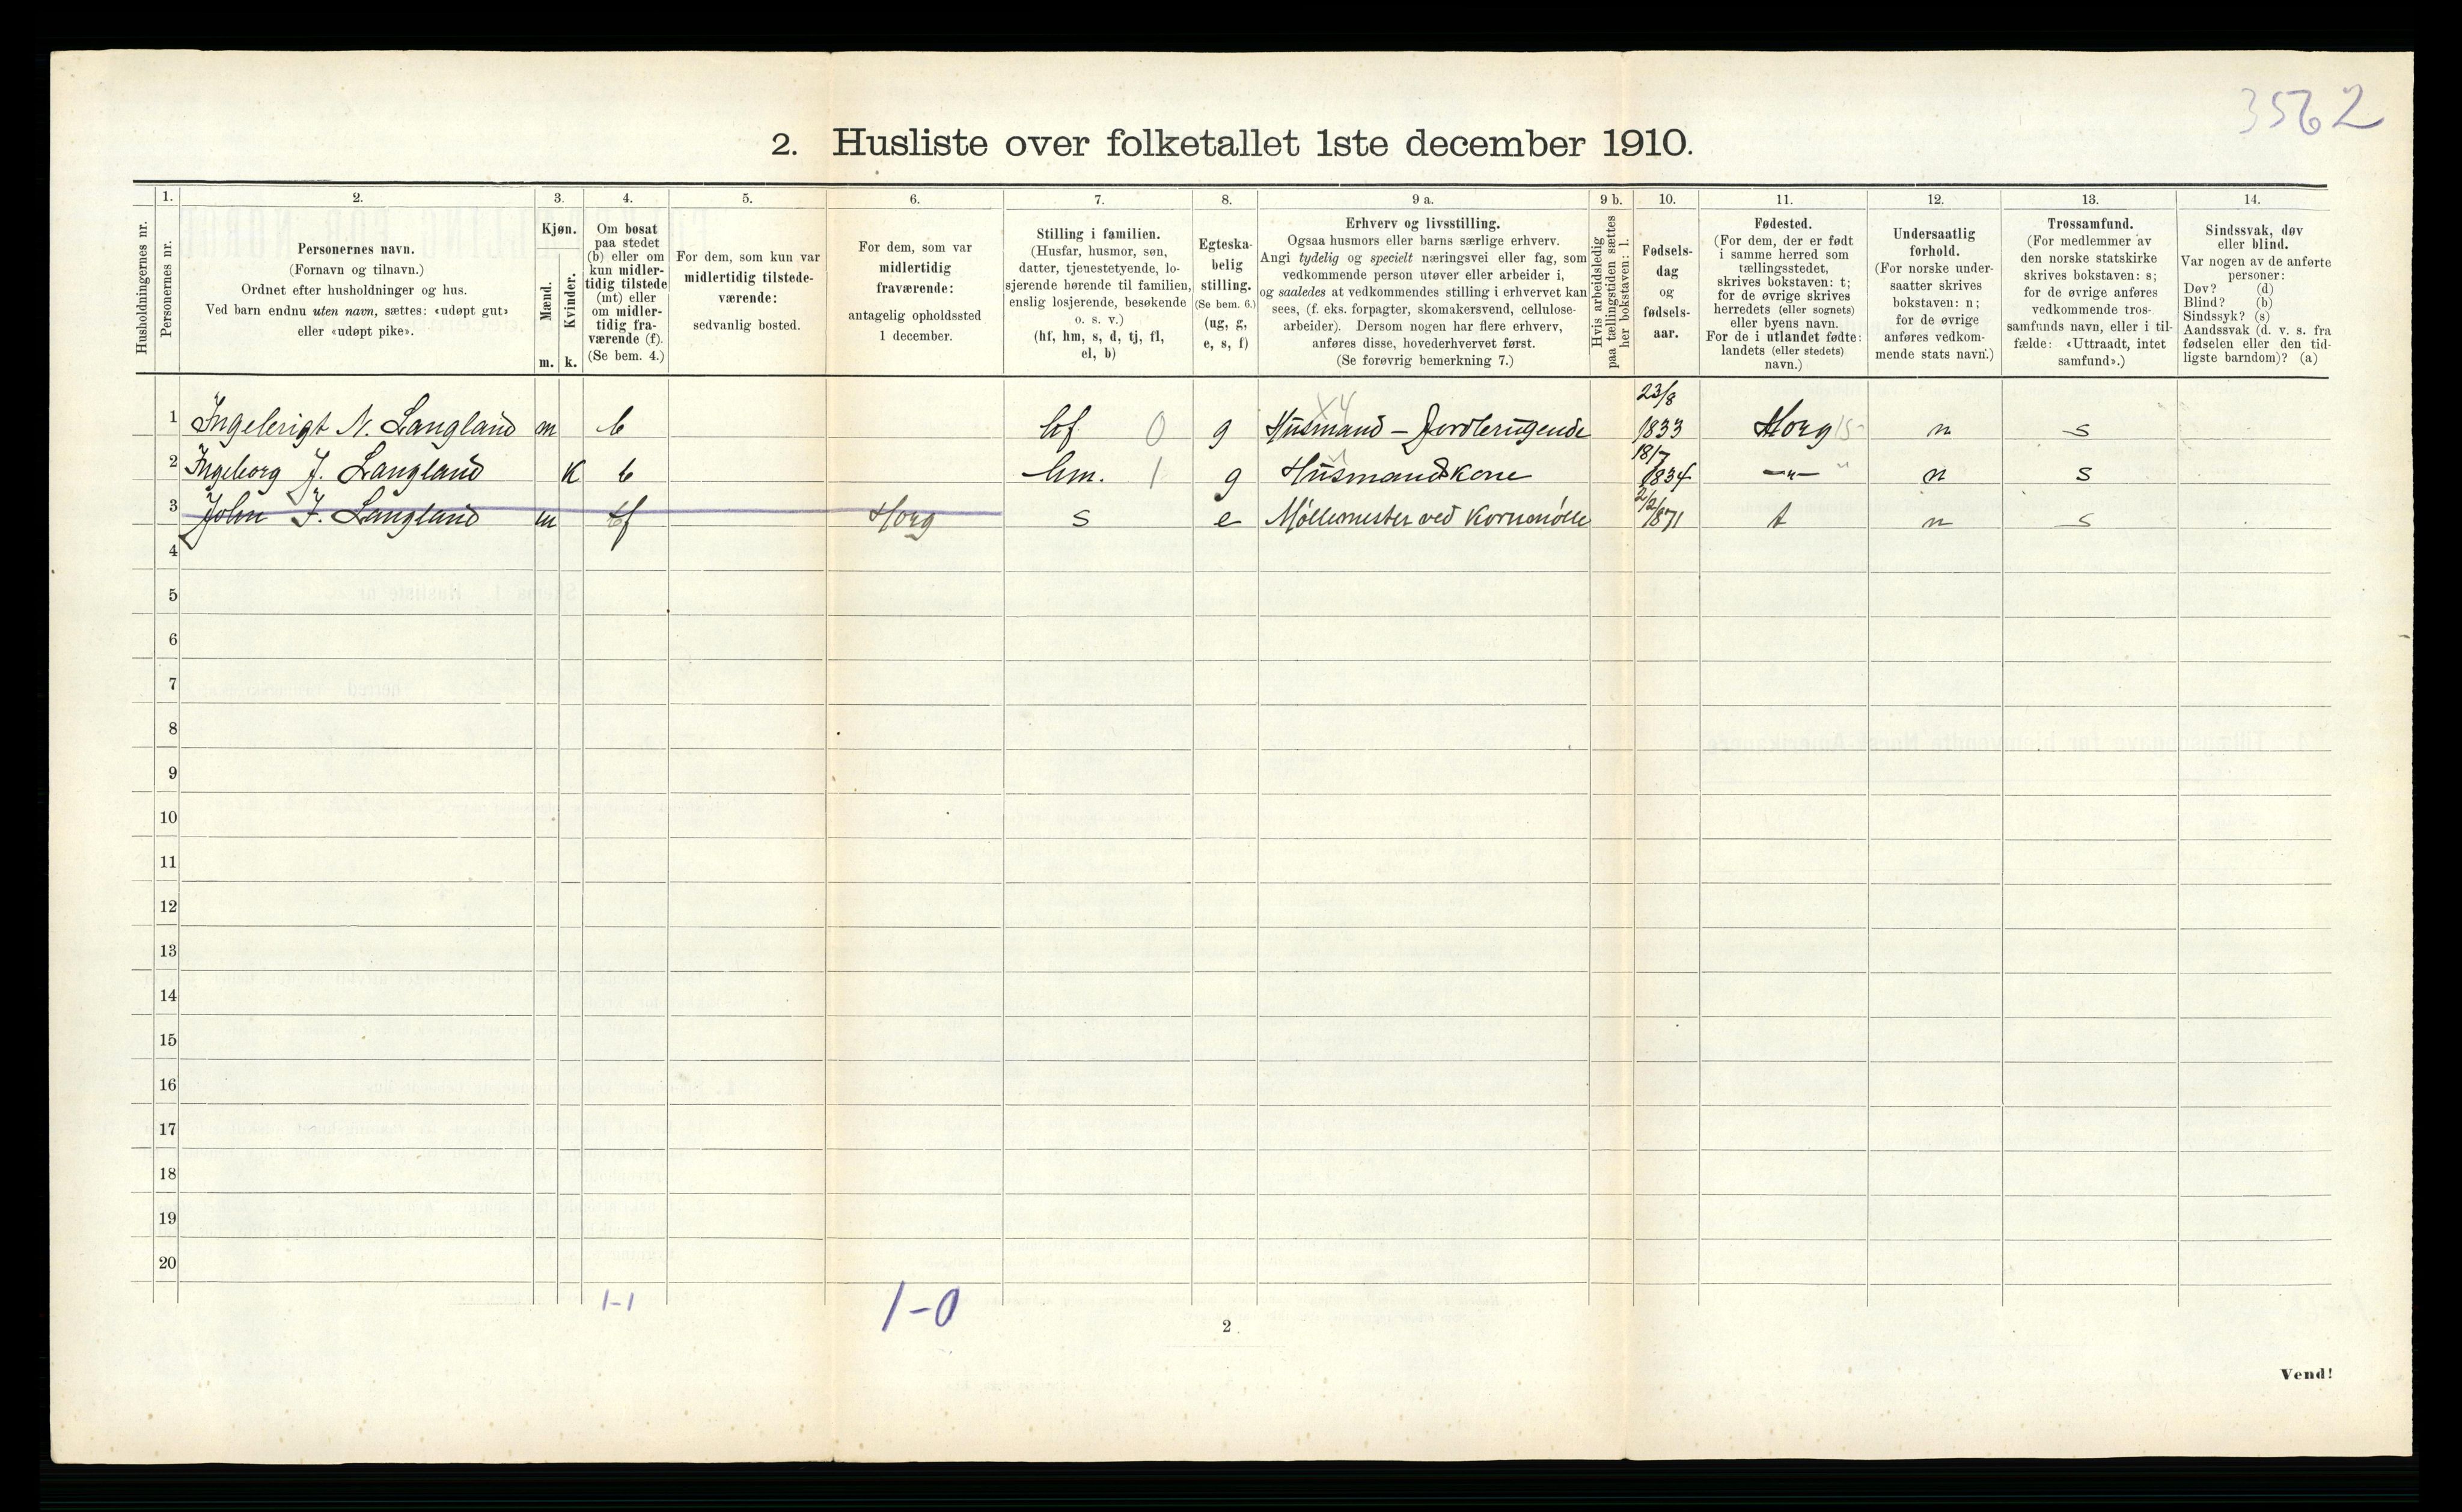 3562
2. Husliste over folketallet 1ste december 1910.
Husholdningernes nr.
1.
Personernes nr.
2.
Personernes navn.
(Fornavn og tilnavn.)
Ordnet efter husholdninger og hus.
Ved barn endnu uten navn, sættes: «udøpt gut»
eller «udøpt pike».
3.
Kjøn.
Mænd.
Kvinder.
m. k.
4.
Om bosat
paa stedet
(b) eller om
kun midler-
tidig tilstede
(mt) eller
om midler-
tidig fra-
værende (f).
(Se bem. 4.)
5.
For dem, som kun var
midlertidig tilstede-
værende:
sedvanlig bosted.
6.
For dem, som var
midlertidig
fraværende:
antagelig opholdssted
1 december.
7.
Stilling i familien.
(Husfar, husmor, søn,
datter, tjenestetyende, lo-
sjerende hørende til familien,
enslig losjerende, besøkende
o. s. v.)
(hf, hm, s, d, tj, fl,
el, b)
8.
Egteska-
belig
stilling.
(Se bem. 6.)
(ug, g,
e, s, f)
9 a.
Erhverv og livsstilling.
Ogsaa husmors eller barns særlige erhverv.
Angi tydelig og specielt næringsvei eller fag, som
vedkommende person utøver eller arbeider i,
og saaledes at vedkommendes stilling i erhvervet kan
sees, (f. eks. forpagter, skomakersvend, cellulose-
arbeider). Dersom nogen har flere erhverv,
anføres disse, hovederhvervet først.
(Se forøvrig bemerkning 7.)
9 b.
Hvis arbeidsledig
paa tællingstiden sættes
her bokstaven: l.
10.
Fødsels-
dag
og
fødsels-
aar.
11.
Fødested.
(For dem, der er født
i samme herred som
tællingsstedet,
skrives bokstaven: t;
for de øvrige skrives
herredets (eller sognets)
eller byens navn.
For de i utlandet fødte:
landets (eller stedets)
navn.)
12.
Undersaatlig
forhold.
(For norske under-
saatter skrives
bokstaven: n;
for de øvrige
anføres vedkom-
mende stats navn.)
13.
Trossamfund.
(For medlemmer av
den norske statskirke
skrives bokstaven: s;
for de øvrige anføres
vedkommende tros-
samfunds navn, eller i til-
fælde: «Uttraadt, intet
samfund».)
14.
Sindssvak, døv
eller blind.
Var nogen av de anførte
personer:
Døv? (d)
Blind? (b)
Sindssyk? (s)
Aandssvak (d. v. s. fra
fødselen eller den tid-
ligste barndom)? (a)
X4 23/8
1 Ingebrigt N. Langland m b hf 0 g Husmand – Jordbrugende 1833 Horg 15 n s
18/7
2 Ingeborg J. Langland k b hm. 1 g Husmandskone 1834 –"– " n s
2/2
3 John I. Langland m f Horg s e Møllemester ved Kornmølle 1871 t n s
4
5
6
7
8
9
10
11
12
13
14
15
16
17
18
19
20
1-1 1-0
2
Vend!